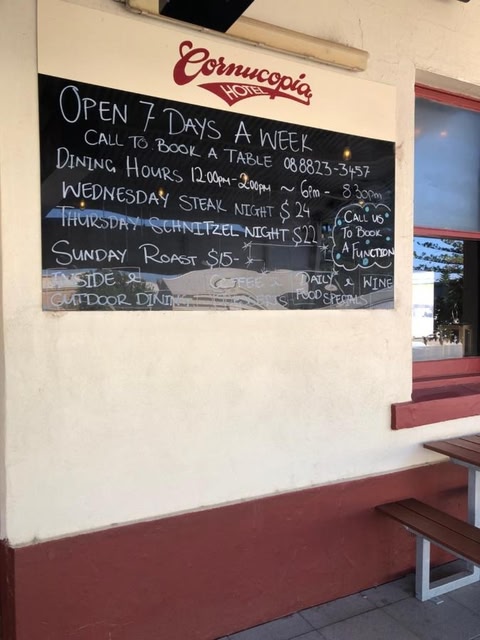 Cornucopia
HOTEL
OPEN 7 DAYS A WEEK
CALL TO BOOK A TABLE 08 8823-3457
DINING HOURS 12:00pm-2:00pm ~ 6pm - 8 30pm
WEDNESDAY STEAK NIGHT $24
THURSDAY SCHNITZEL NIGHT $22
CALL US
TO BOOK
A FUNCTION
SUNDAY ROAST $15-
INSIDE & COFFEE & DAILY & WINE
OUTDOOR DINING DESSERTS FOOD SPECIALS